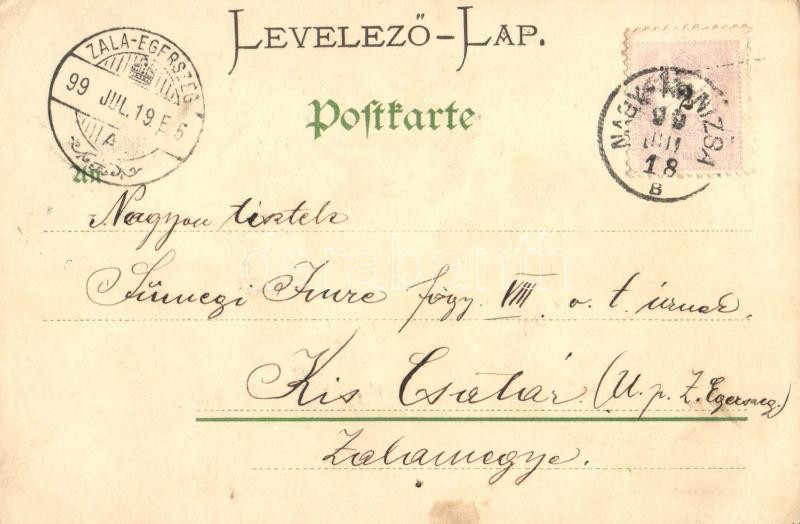 LEVELEZŐ-LAP.
ZALA-EGERSZEG
99 JUL. 19. E 5
A
NAGY-KANIZSA
99 JUL
18
B
2
Postkarte
An
Nagyon tisztelt
Sümegi Imre fögy. VIII. o. t. úrnak.
Kis Csatár. (U. p. Z. Egerszeg.)
Zalamegye.
darabanth